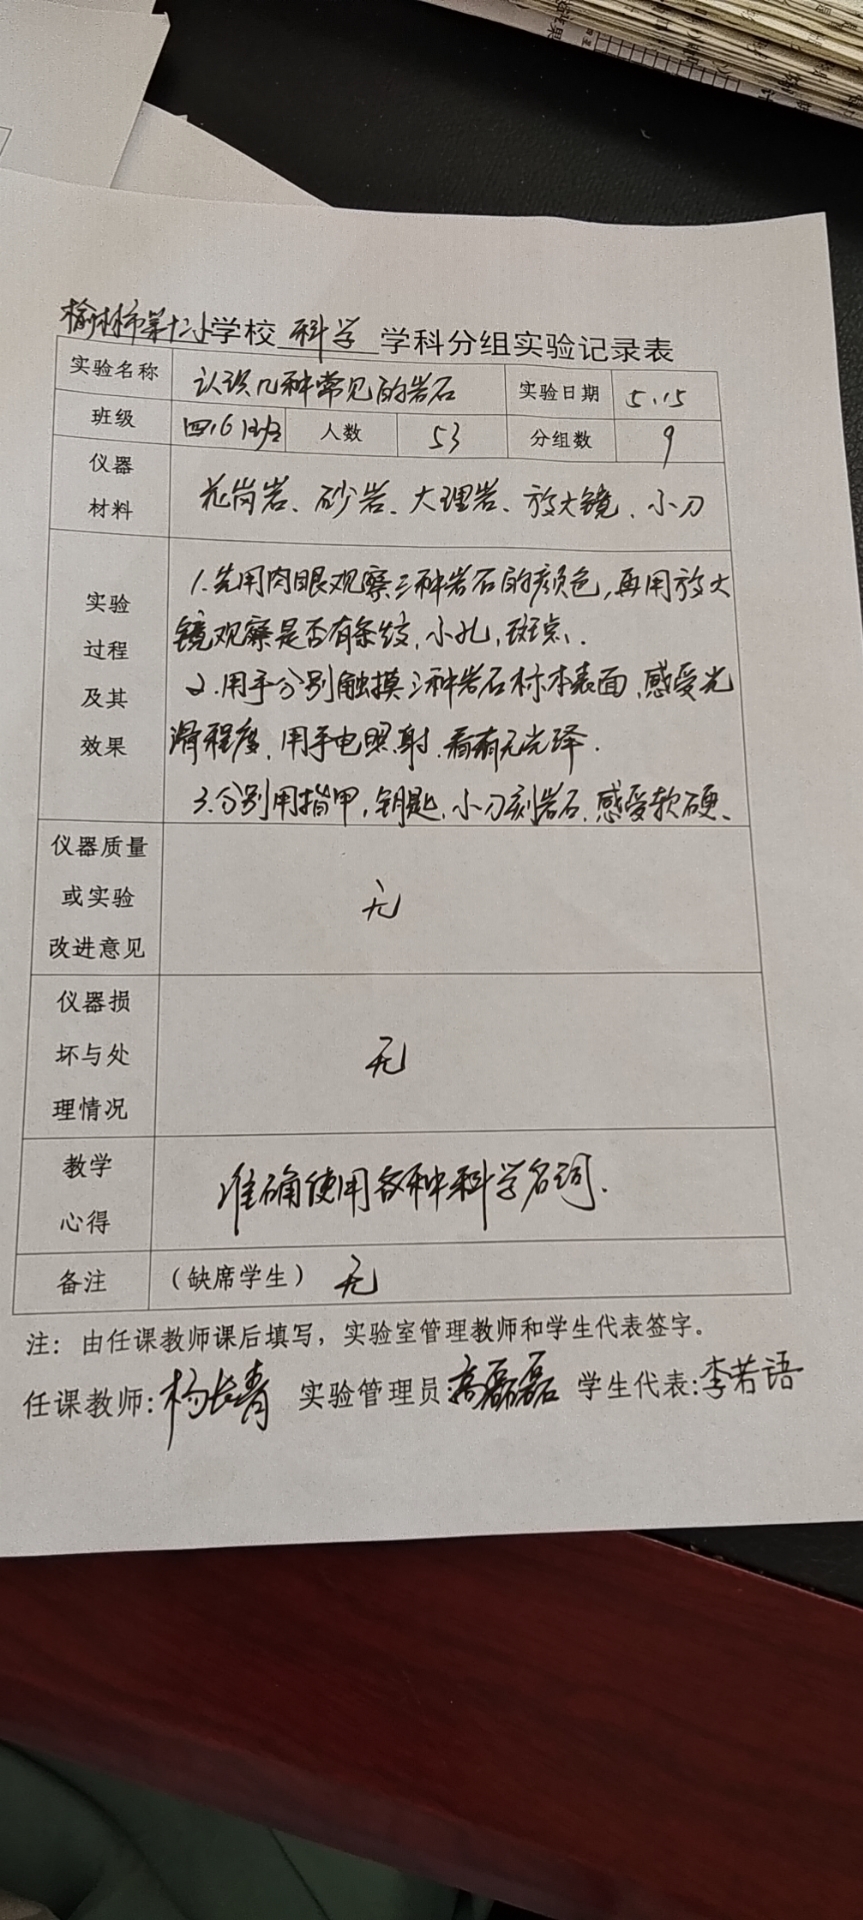 榆林市第十二小学校 科学 学科分组实验记录表
实验名称 认识几种常见的岩石 实验日期 5.15
班级 四.6班 人数 53 分组数 9
仪器
材料
花岗岩、砂岩、大理岩、放大镜、小刀
实验
过程
及其
效果
1.先用肉眼观察三种岩石的颜色,再用放大
镜观察是否有条纹,小孔,斑点、.
2.用手分别触摸三种岩石标本表面,感受光
滑程度,用手电照射,看有无光泽.
3.分别用指甲,钥匙,小刀刻岩石,感受软硬、
仪器质量
或实验
改进意见
无
仪器损
坏与处
理情况
无
教学
心得
准确使用各种科学名词.
备注 （缺席学生） 无
注：由任课教师课后填写，实验室管理教师和学生代表签字。
任课教师:杨长青 实验管理员:高磊磊 学生代表:李若语